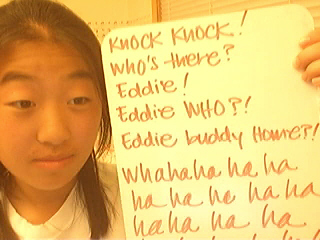 KNOCK KNOCK!
WHO'S there?
Eddie!
Eddie WHO?!
Eddie buddy Home?!
Whahaha ha ha
ha ha he ha ha
haha ha ha